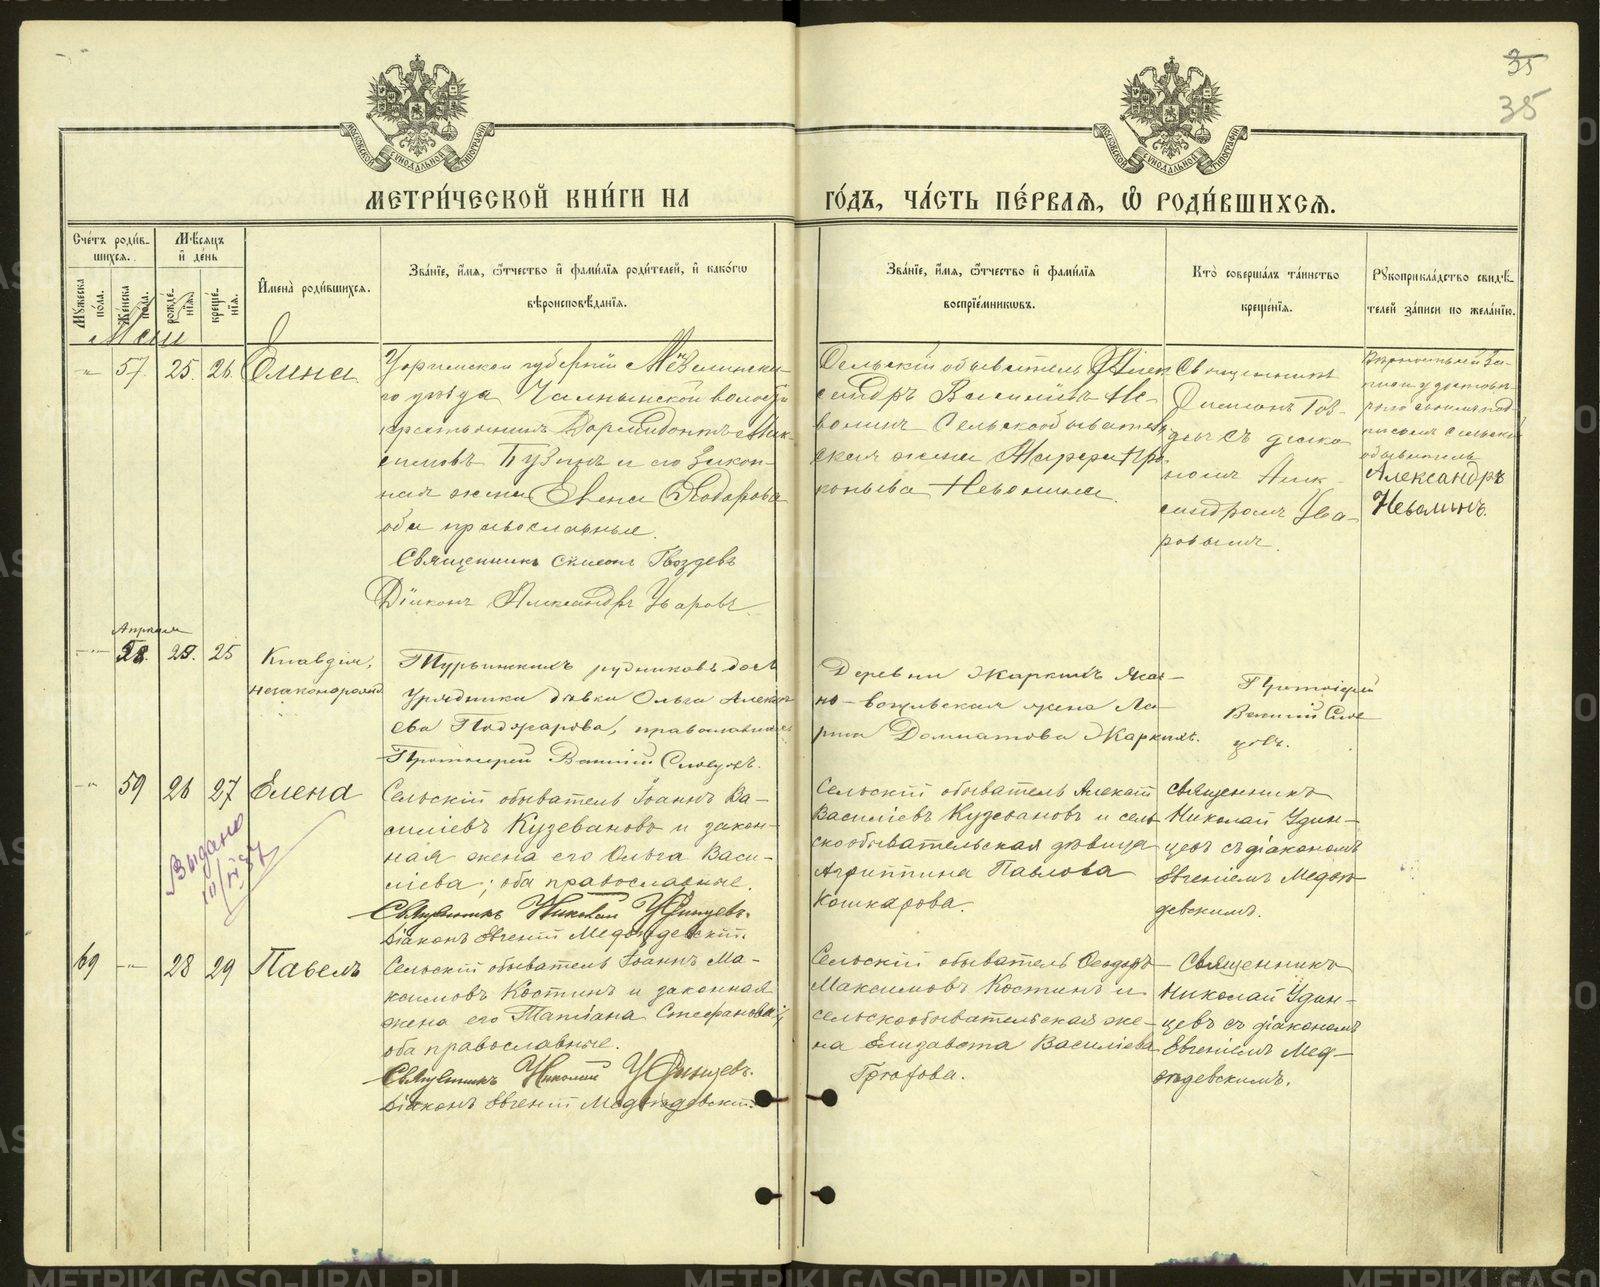 35
35
МЕТРИ́ЧЕСКОЙ КНИ́ГИ НА ГО́ДЪ, ЧА́СТЬ ПЕ́РВАѦ, Ѡ҆ РОДИ́ВШИХСѦ.
Сче́тъ роди́в-
шихся.
Мѣ́сяцъ
и҆ де́нь
Мꙋ́жеска по́ла.
Же́нска по́ла.
рожде́-
нїѧ.
креще́-
нїѧ.
И҆мена̀ роди́вшихсѧ.
Зва́нїе, и҆́мѧ, ѻ҆́тчество и҆ фами́лїѧ роди́телей, и҆ како́гѡ
вѣроисповѣ́данїѧ.
Зва́нїе, и҆́мѧ, ѻ҆́тчество и҆ фами́лїѧ
воспрїе́мникѡвъ.
Кто̀ соверша́лъ та́инство
креще́нїѧ.
Рꙋкоприкла́дство свидѣ́-
телей за́писи по жела́нїю.
Маи
" 57. 25. 26. Елена.
Уфимской губерніи Мензелинска-
го уѣзда Челнынской волости
крестьянинъ Дормидонтъ Мак-
симовъ Бузинъ и его закон-
ная жена Елена Ѳеодорова
оба православные.
Священникъ Симеонъ Гвоздевъ
Діаконъ Александръ Уваровъ
Сельскій обыватель Алек
сандръ Васильевъ Не-
волинъ Сельскообыватель
ская жена Марфа Про
копьева Неволина.
Священникъ
Симеонъ Гвоз-
девъ съ діако-
номъ Алек-
сандромъ Ува-
ровымъ.
писи удостовѣ-
рилъ своимъ под-
писомъ сельскій
обыватель
Александръ
Неволинъ.
Апрѣля
58. 23. 25 Клавдія,
незаконорожд
Турьинскихъ рудниковъ дочь
Урядника дѣвка Ольга Алексѣ
еваПоджарова, православная
Протоіерей Василій Словцовъ.
Деревни Жаркихъ
жена Ма-
рія Домнатова Жаркихъ.
Протоіерей
Василій Слов
цовъ.
" 59 26 27 Елена
Сельскій обыватель Іоаннъ Ва-
силіевъ Кузевановъ и закон-
ная жена его Ольга Васи-
ліева; оба православные.
Священникъ Николай Удинцевъ.
Діаконъ Евгеній Медвѣдевскій.
Сельскій обыватель Алексѣй
Василіевъ Кузевановъ и сель
скообывательская дѣвица
Агриппина Павлова
Кошкарова.
Священникъ
Николай Удин-
цевъ съ діакономъ
Евгеніемъ Медвѣ
девскимъ.
Выдано
69 " 28 29 Павелъ
Сельскій обыватель Іоаннъ Ма-
ксимовъ Костинъ и законная
жена его Татіана Стефанова;
оба православные.
Священникъ Николай Удинцевъ.
Діаконъ Евгеній Медвѣдевскій.
Сельскій обыватель Ѳеодоръ
Максимовъ Костинъ и
сельскообывательская же-
на Елизавета Василіева
Священникъ
Николай Удин-
цевъ съ діакономъ
Евгеніемъ Мед-
вѣдевскимъ.
METRIKI.GASO-URAL.RU